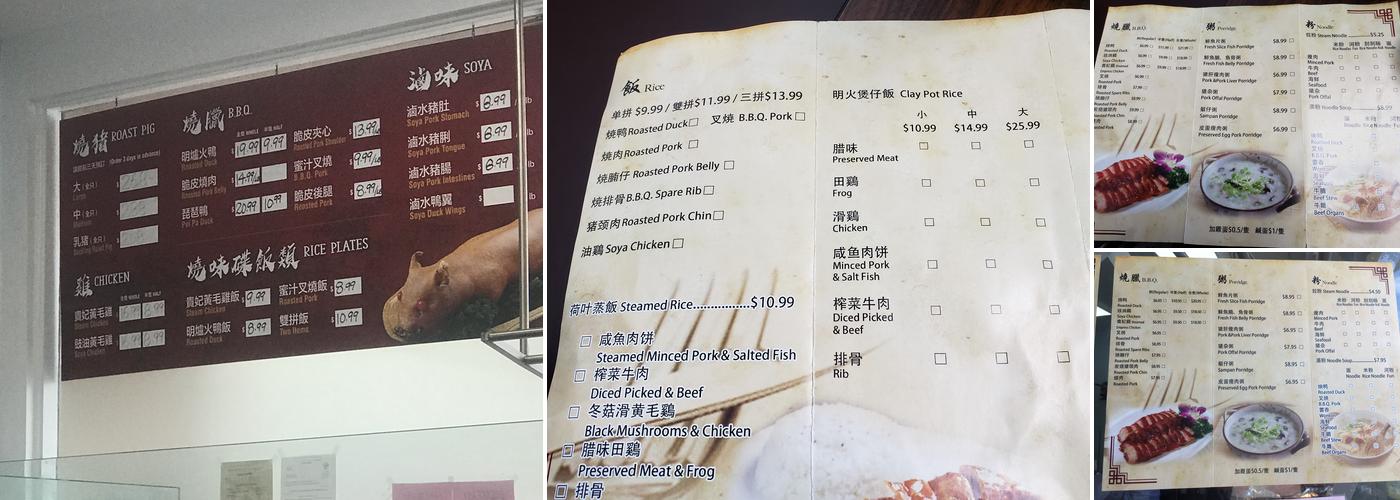 燒豬 ROAST PIG
(Order 3 days in advance)
大(全只)
Large
中(全只)
Medium
乳豬(全只)
Suckling Roast Pig
燒臘 B.B.Q.
全隻 WHOLE 半隻 HALF
明爐火鴨 $19.99 9.99
Roasted Duck
脆皮燒肉 $14.99/lb
Roasted Pork Belly
琵琶鴨 $20.99 10.99
Pei Pa Duck
脆皮夾心 $13.99/lb
Roasted Pork Shoulder
蜜汁叉燒 $9.99/lb
B.B.Q. Pork
脆皮後腿 $8.99/lb
Roasted Pork
滷味 SOYA
滷水豬肚 $8.99 / lb
Soya Pork Stomach
滷水豬脷 $8.99 / lb
Soya Pork Tongue
滷水豬腸 $8.99 / lb
Soya Pork Intestines
滷水鴨翼 $ lb
Soya Duck Wings
雞 CHICKEN
全隻 WHOLE 半隻 HALF
貴妃黃毛雞
Steam Chicken
豉油黃毛雞
Soya Chicken
燒味碟飯類 RICE PLATES
貴妃黃毛雞飯 $9.99
Steam Chicken
明爐火鴨飯 $8.99
Roasted Duck
蜜汁叉燒飯 $8.99
Roasted Pork
雙拼飯 $10.99
Two Items
飯 Rice
单拼 $9.99 / 雙拼$11.99 / 三拼$13.99
燒鸭Roasted Duck□ 叉烧 B.B.Q. Pork□
燒肉Roasted Pork □
燒腩仔 Roasted Pork Belly □
燒排骨B.B.Q. Spare Rib□
猪颈肉Roasted Pork Chin□
油鷄Soya Chicken□
荷叶蒸飯 Steamed Rice................$10.99
□ 咸魚肉饼
Steamed Minced Pork & Salted Fish
□ 榨菜牛肉
Diced Picked & Beef
□ 冬菇滑黄毛鷄
Black Mushrooms & Chicken
□ 腊味田鷄
Preserved Meat & Frog
□ 排骨
明火煲仔飯 Clay Pot Rice
小 中 大
$10.99 $14.99 $25.99
腊味 □ □ □
Preserved Meat
田鷄 □ □ □
Frog
滑鷄 □ □ □
Chicken
咸魚肉饼 □ □ □
Minced Pork
& Salt Fish
榨菜牛肉 □ □ □
Diced Picked
& Beef
排骨 □ □ □
Rib
燒臘 B.B.Q.
粥 Porridge
鮮魚片粥 $8.99 □
Fresh Slice Fish Porridge
鮮魚腩、魚骨粥 $8.99 □
Fresh Fish Belly Porridge
猪肝瘦肉粥 $6.99 □
Pork &Pork Liver Porridge
猪杂粥 $7.99 □
Pork Offal Porridge
艇仔粥 $8.99 □
Sampan Porridge
皮蛋瘦肉粥 $6.99 □
Preserved Egg Pork Porridge
加雞蛋$0.5/隻 鹹蛋$1/隻
粉 Noodle
粄粉 Steam Noodle $5.25
瘦肉
Minced Pork
牛肉
Beef
海鲜
Seafood
猪杂
Pork Offal
湯粉 Noodle Soup
Beef Stew
牛雜
Beef Organs
燒臘 B.B.Q.
粥 Porridge
鮮魚片粥 $8.95 □
Fresh Slice Fish Porridge
鮮魚腩、魚骨粥 $8.95 □
Fresh Fish Belly Porridge
猪肝瘦肉粥 $6.95 □
Pork &Pork Liver Porridge
猪杂粥 $7.95 □
Pork Offal Porridge
艇仔粥 $8.95 □
Sampan Porridge
皮蛋瘦肉粥 $6.95 □
Preserved Egg Pork Porridge
加雞蛋$0.5/隻 鹹蛋$1/隻
粉 Noodle
Steam Noodle $4.50
瘦肉
Minced Pork
牛肉
Beef
海鲜
Seafood
猪杂
Pork Offal
湯粉 Noodle Soup $7.95
燒鸭
Roasted Duck
叉烧
B.B.Q. Pork
雲吞
Wonton
海鲜
Seafood
牛腩
Beef Stew
牛雜
Beef Organs